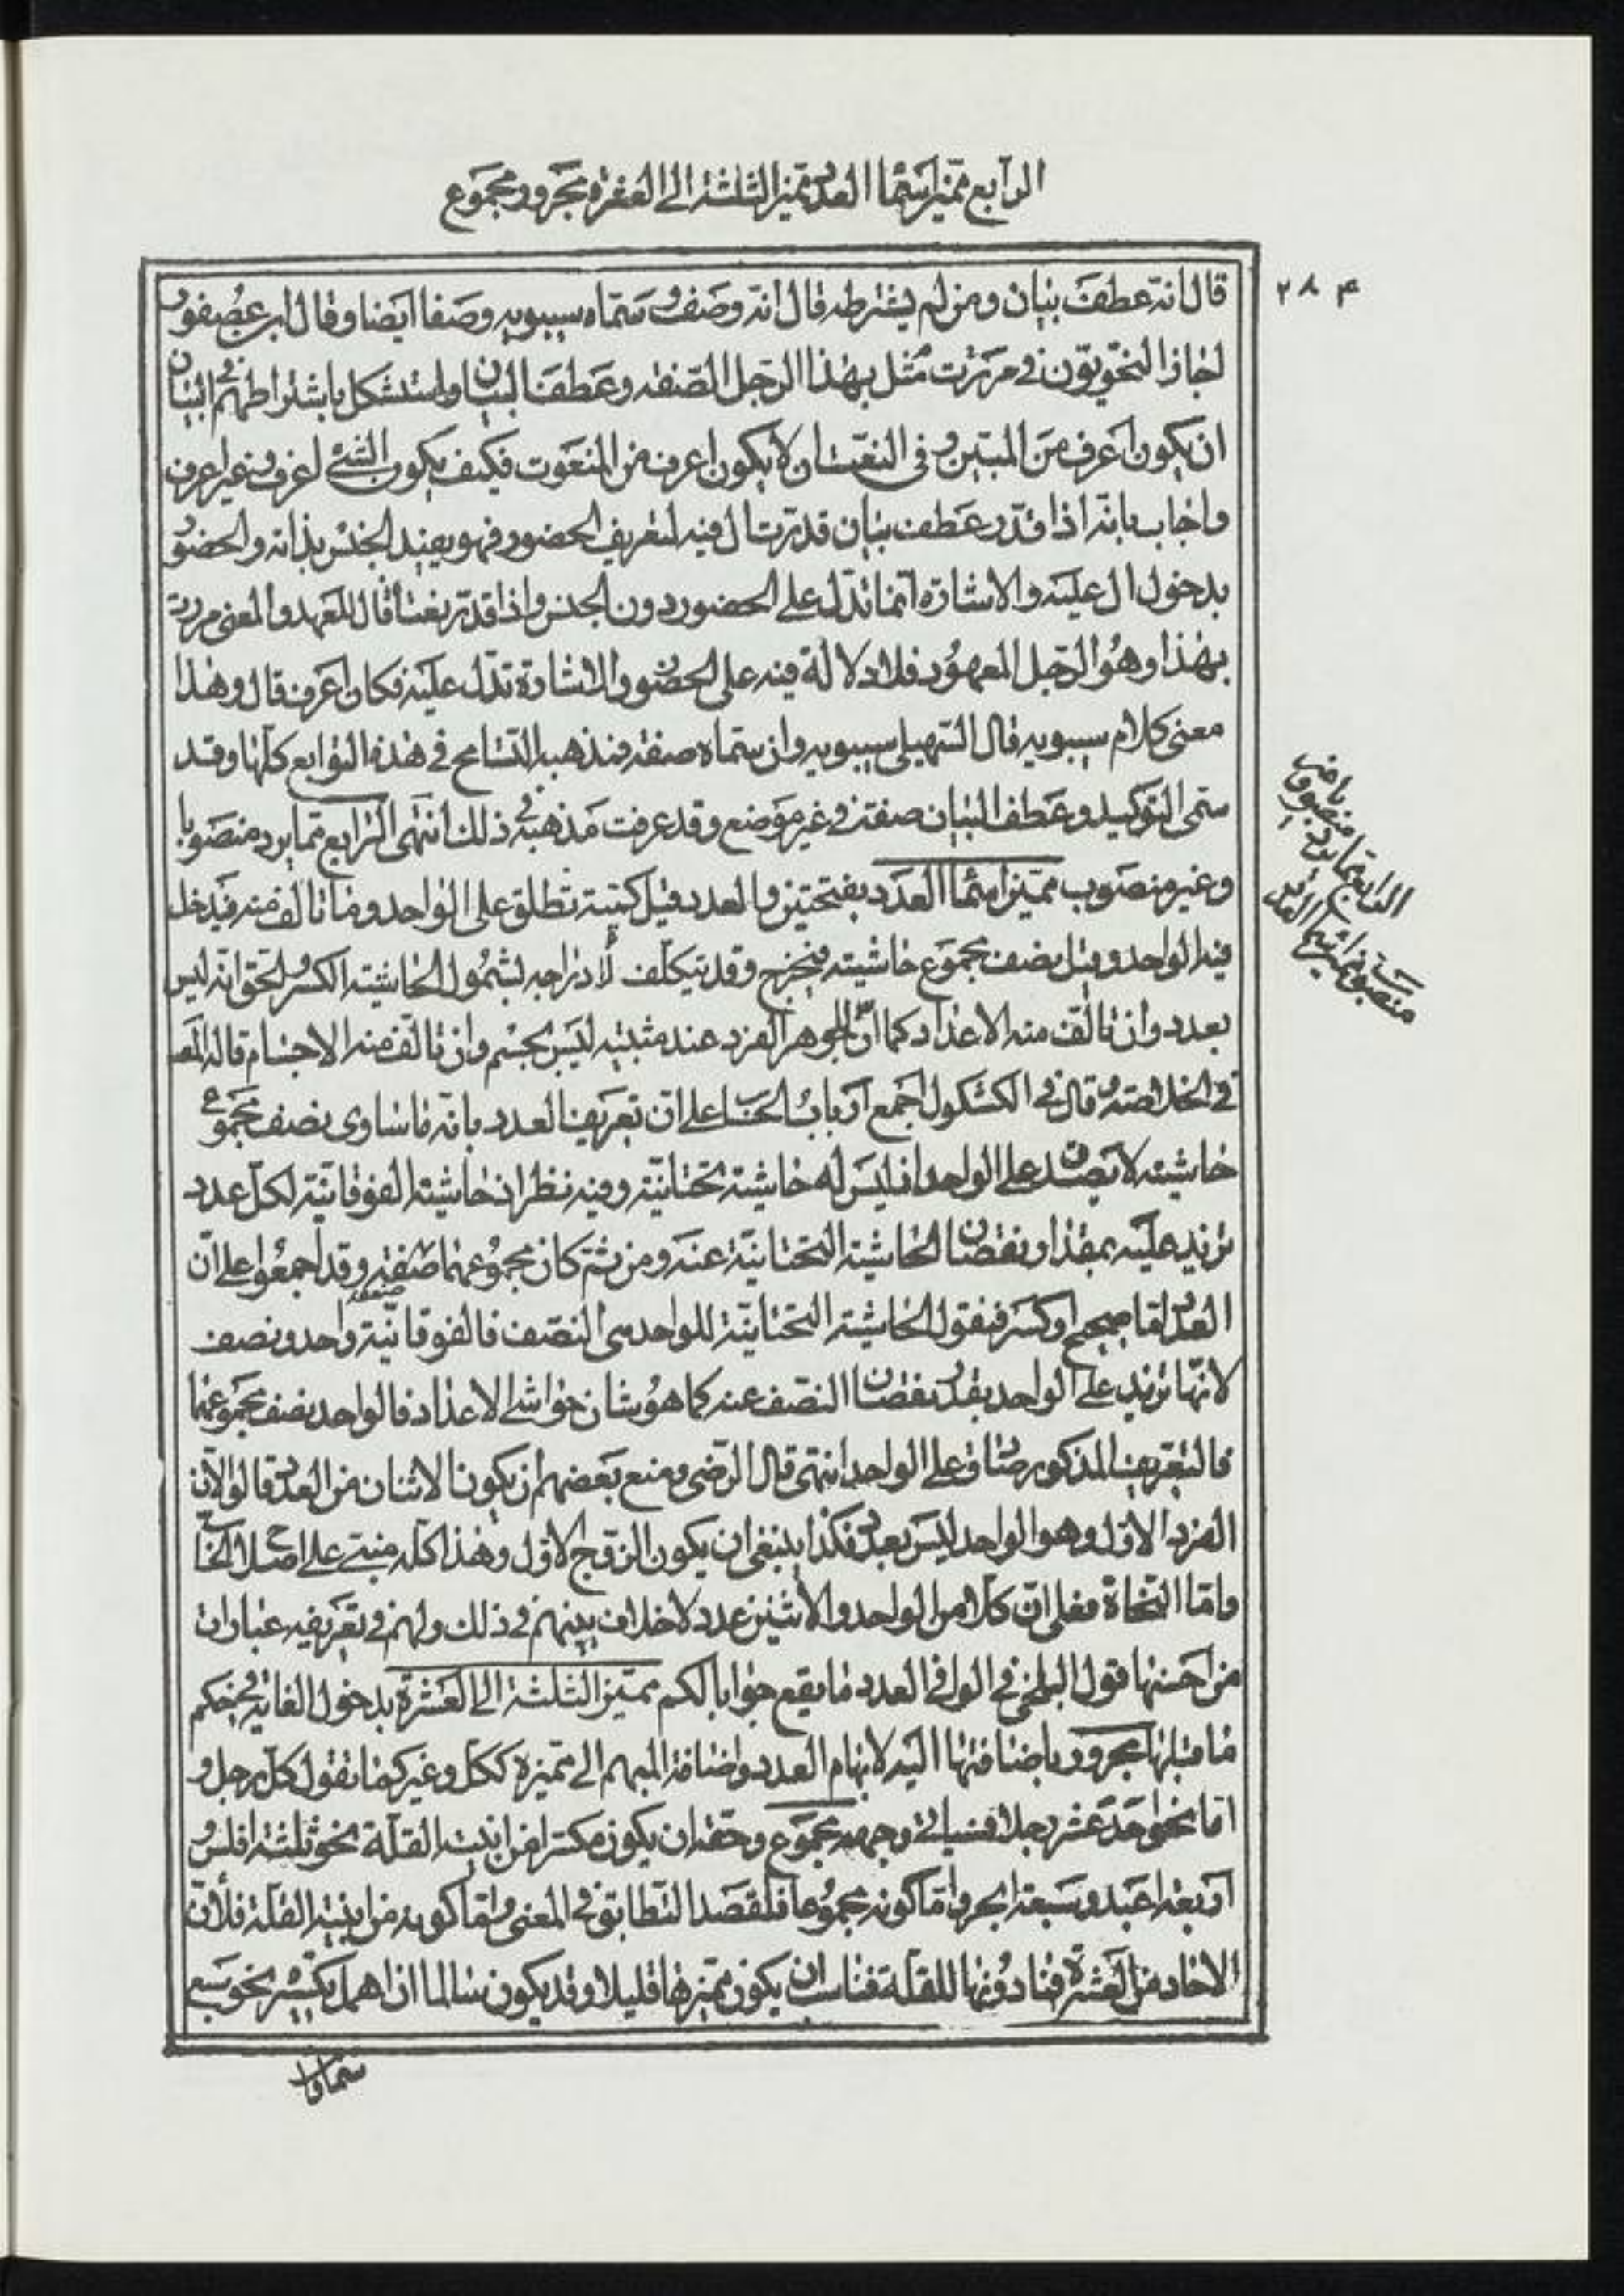 الرابع مميز اسماء العدد مميز الثلثة الى العشرة مجرور ومجموع
٢٨٤
قال انه عطف بيان ومن لم يشترطه قال انه وصف وسماه سيبويه وصفا ايضا وقال ابن عصفور
اجاز النحويون في مررت بهذا الرجل الصفة وعطف البيان واستشكل باشتراطهم في البيان
ان يكون اعرف من المبين وفى النعت ان لا يكون اعرف من المنعوت فكيف يكون الشئ اعرف وغير اعرف
واجاب بانه اذا قدر عطف بيان قدرت ال فيه لتعريف الحضور فهو يفيد الجنس بذاته والحضور
بدخول ال عليه والاشارة انما تدل على الحضور دون الجنس واذا قدر نعتا قال للعهد والمعنى مررت
بهذا وهو الرجل المعهود فلا دلالة فيه على الحضور والاشارة تدل عليه فكان اعرف قال وهذا
معنى كلام سيبويه قال السهيلى سيبويه وان سماه صفة فمذهبه التسامح في هذه التوابع كلها وقد
سمى التوكيد وعطف البيان صفة في غير موضع وقد عرفت مذهبه في ذلك انتهى الرابع مما يرد منصوبا
وغير منصوب مميز اسماء العدد بفتحتين والعدد قيل كمية تطلق على الواحد وما تالف منه فيدخل
فيه الواحد وقيل نصف مجموع حاشيتيه فيخرج وقد يتكلف لادراجه بشمول الحاشية الكسر والحق انه ليس
بعدد وان تالف منه الاعداد كما ان الجوهر الفرد عند مثبتيه ليس بجسم وان تالف منه الاجسام قاله المص
في الخلاصة وقال في الكشكول اجمع ارباب الحساب على ان تعريف العدد بانه ما ساوى نصف مجموع
حاشيتيه لا يصدق على الواحد اذ ليس له حاشية تحتانية وفيه نظر اذ حاشيته الفوقانية لكل عدد
تزيد عليه بمقدار نقصان الحاشية التحتانية عنه ومن ثم كان مجموعهما ضعفه وقد اجمعوا على ان
ضعفه
العدد اما صحيح او كسر فنقول الحاشية التحتانية للواحد هى النصف فالفوقانية واحد ونصف
لانها تزيد على الواحد بقدر نقصان النصف عنه كما هو شان حواشى الاعداد فالواحد نصف مجموعهما
فالتعريف المذكور صادق على الواحد انتهى قال الرضى ومنع بعضهم ان يكون الاثنان من العدد قالوا لان
الفرد الاول وهو الواحد ليس بعدد فكذا ينبغى ان يكون الزوج الاول وهذا كله مبنى على اصل الحساب
واما النحاة فعلى ان كلا من الواحد والاثنين عدد لا خلاف بينهم في ذلك ولهم في تعريفه عبارات
من احسنها قول البلخى في الوافى العدد ما يقع جوابا لكم مميز الثلثة الى العشرة بدخول الغاية في حكم
ما قبلها مجرور باضافتها اليه لابهام العدد واضافة المبهم الى مميزه ككل وغير كما تقول كل رجل و
اما نحو احد عشر رجلا فسياتى وجهه مجموع وحقه ان يكون مكسرا من ابنية القلة نحو ثلثة افلس و
اربعة اعبد وسبعة ابحر واما كونه مجموعا فلقصد التطابق في المعنى واما كونه من ابنية القلة فلان
الاحاد من العشرة فما دونها للقلة فناسب ان يكون مميزها قليلا وقد يكون سالما ان اهمل تكسيره نحو سبع
سماوات
الرابع مما يرد منصوبا